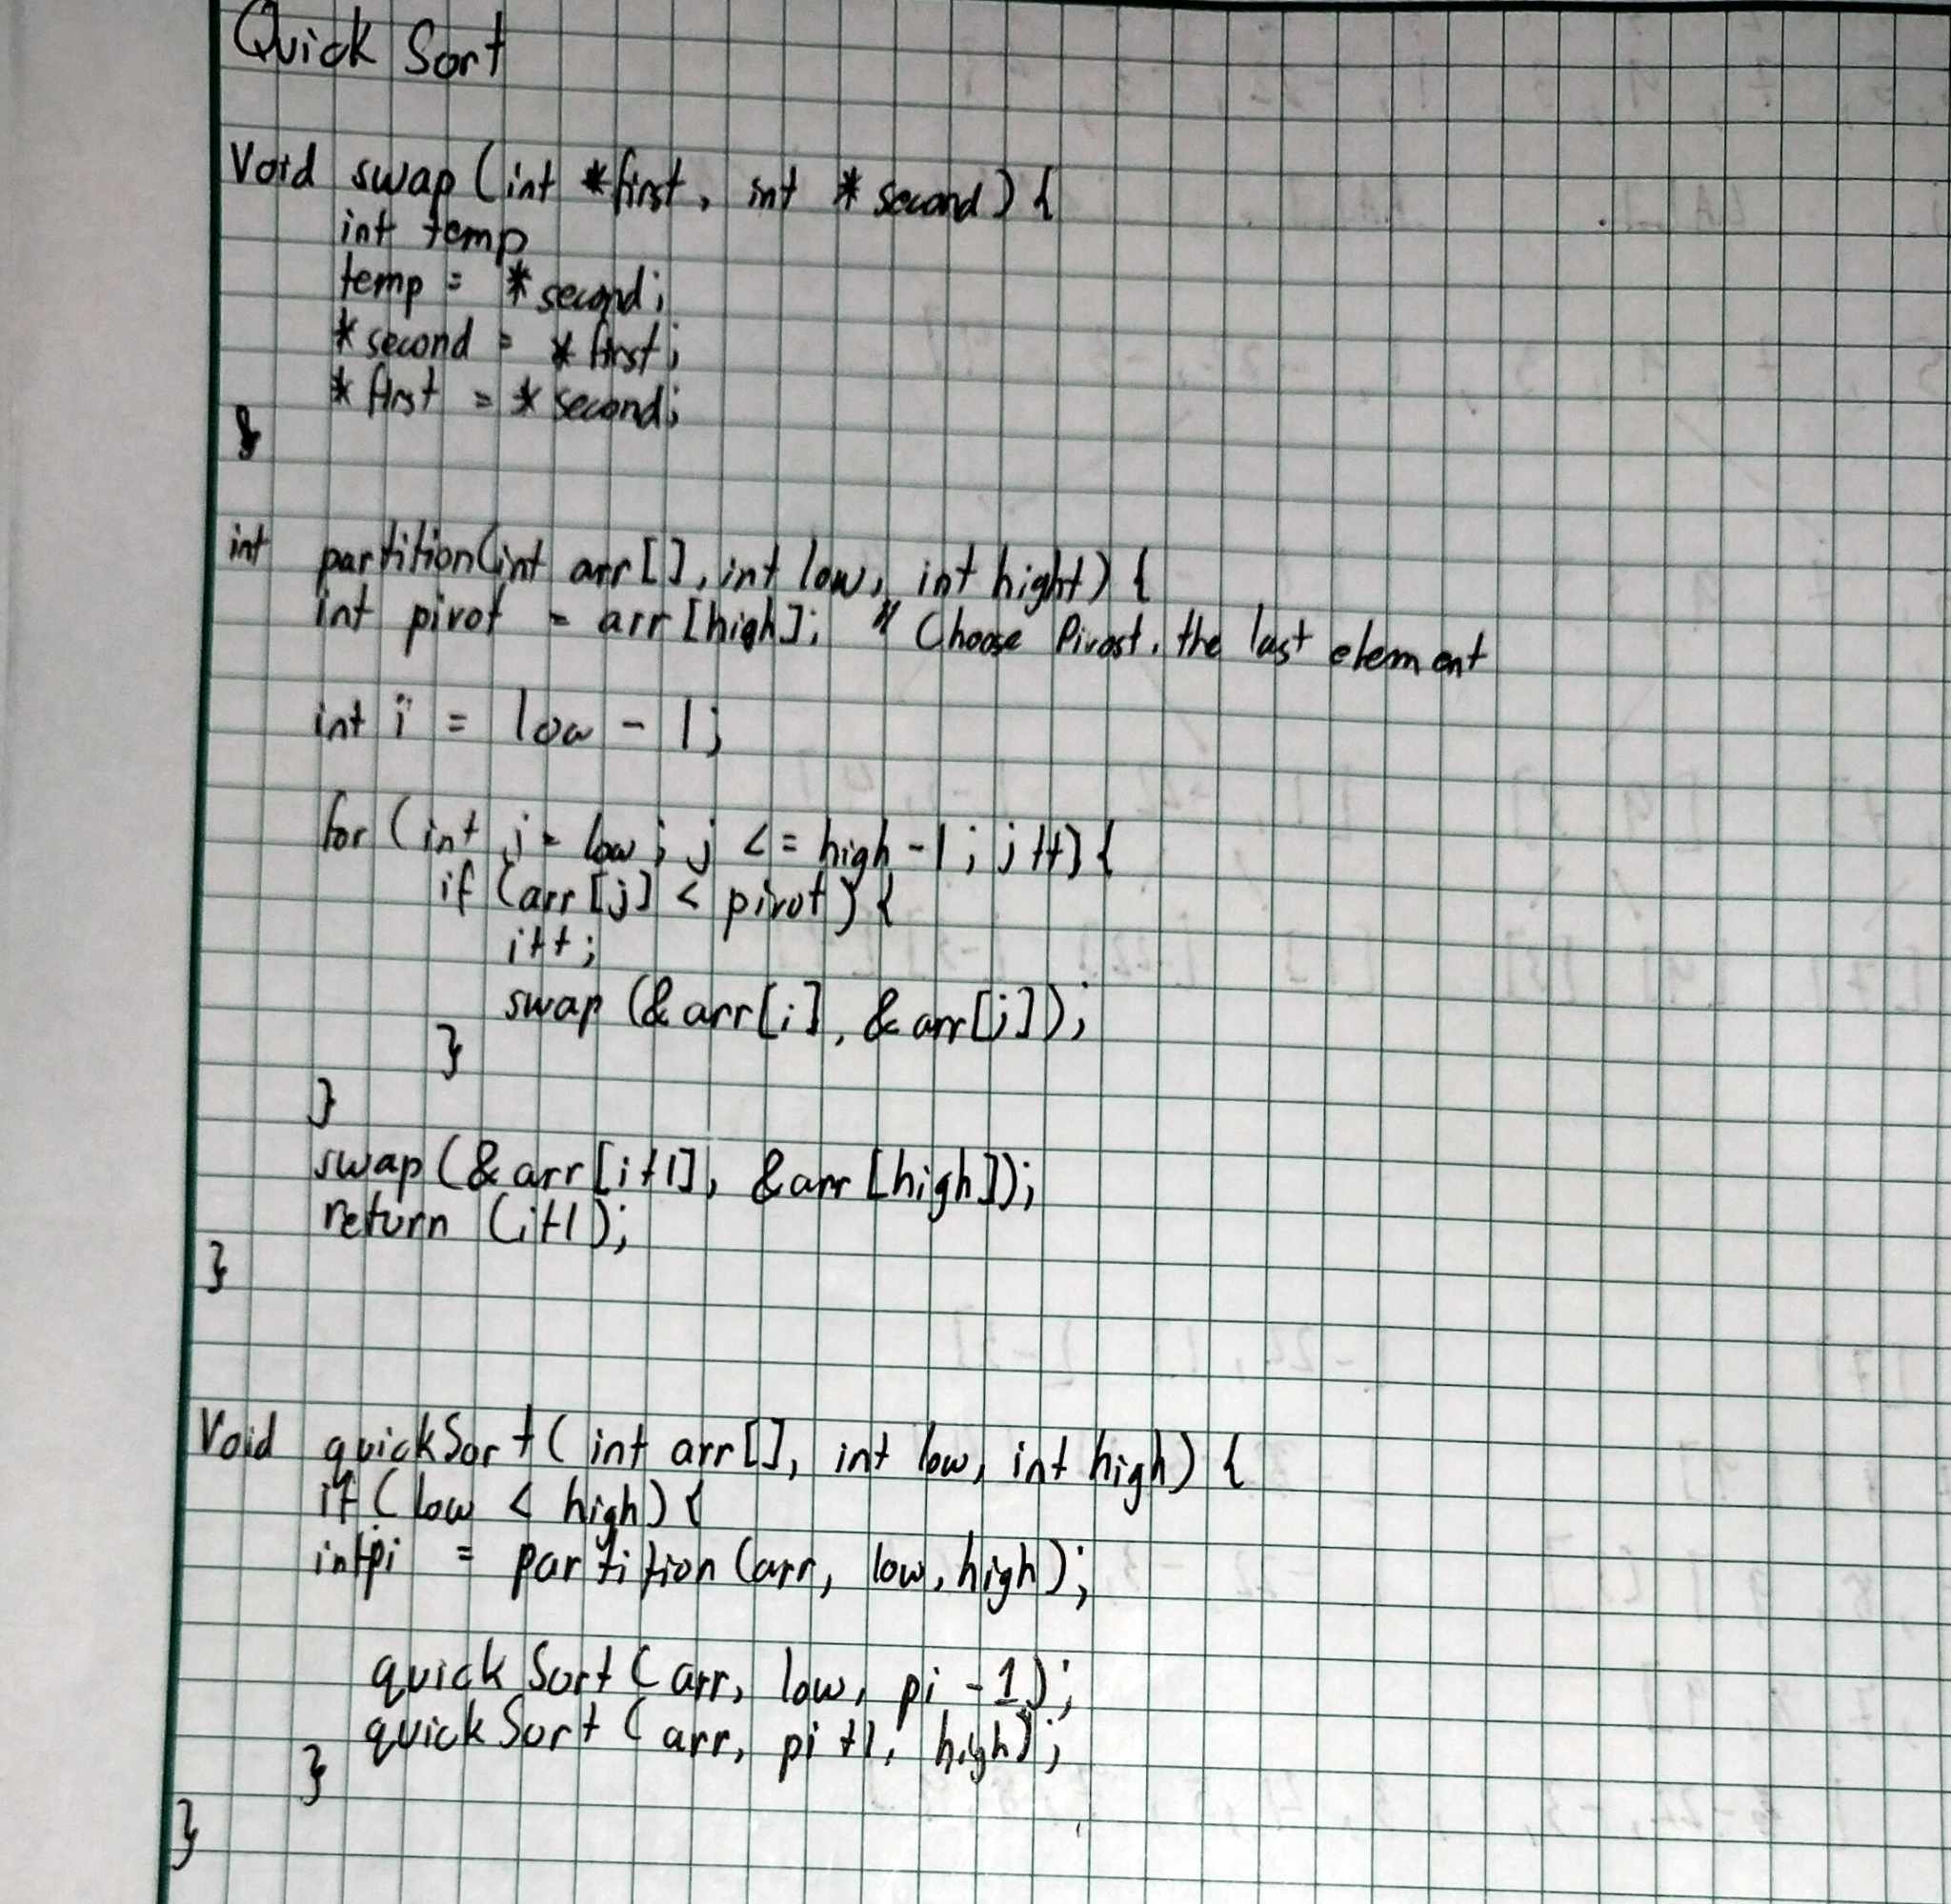 Quick Sort
Void swap (int *first, int * second) {
int temp
temp = * second;
* second = * first;
* first = * second;
}
int partition(int arr[], int low, int hight) {
int pivot = arr [high]; // Choose Pivost, the last element
int i = low - 1;
for (int j = low ; j <= high -1 ; j++) {
if (arr [j] < pivot) {
i++;
swap (& arr[i], & arr[j]);
}
}
swap (& arr [i+1], & arr [high]);
return (i+1);
}
Void quickSort ( int arr[], int low, int high) {
if ( low < high) {
int pi = partition (arr, low, high);
quick Sort ( arr, low, pi - 1);
quick Sort ( arr, pi +1, high);
}
}